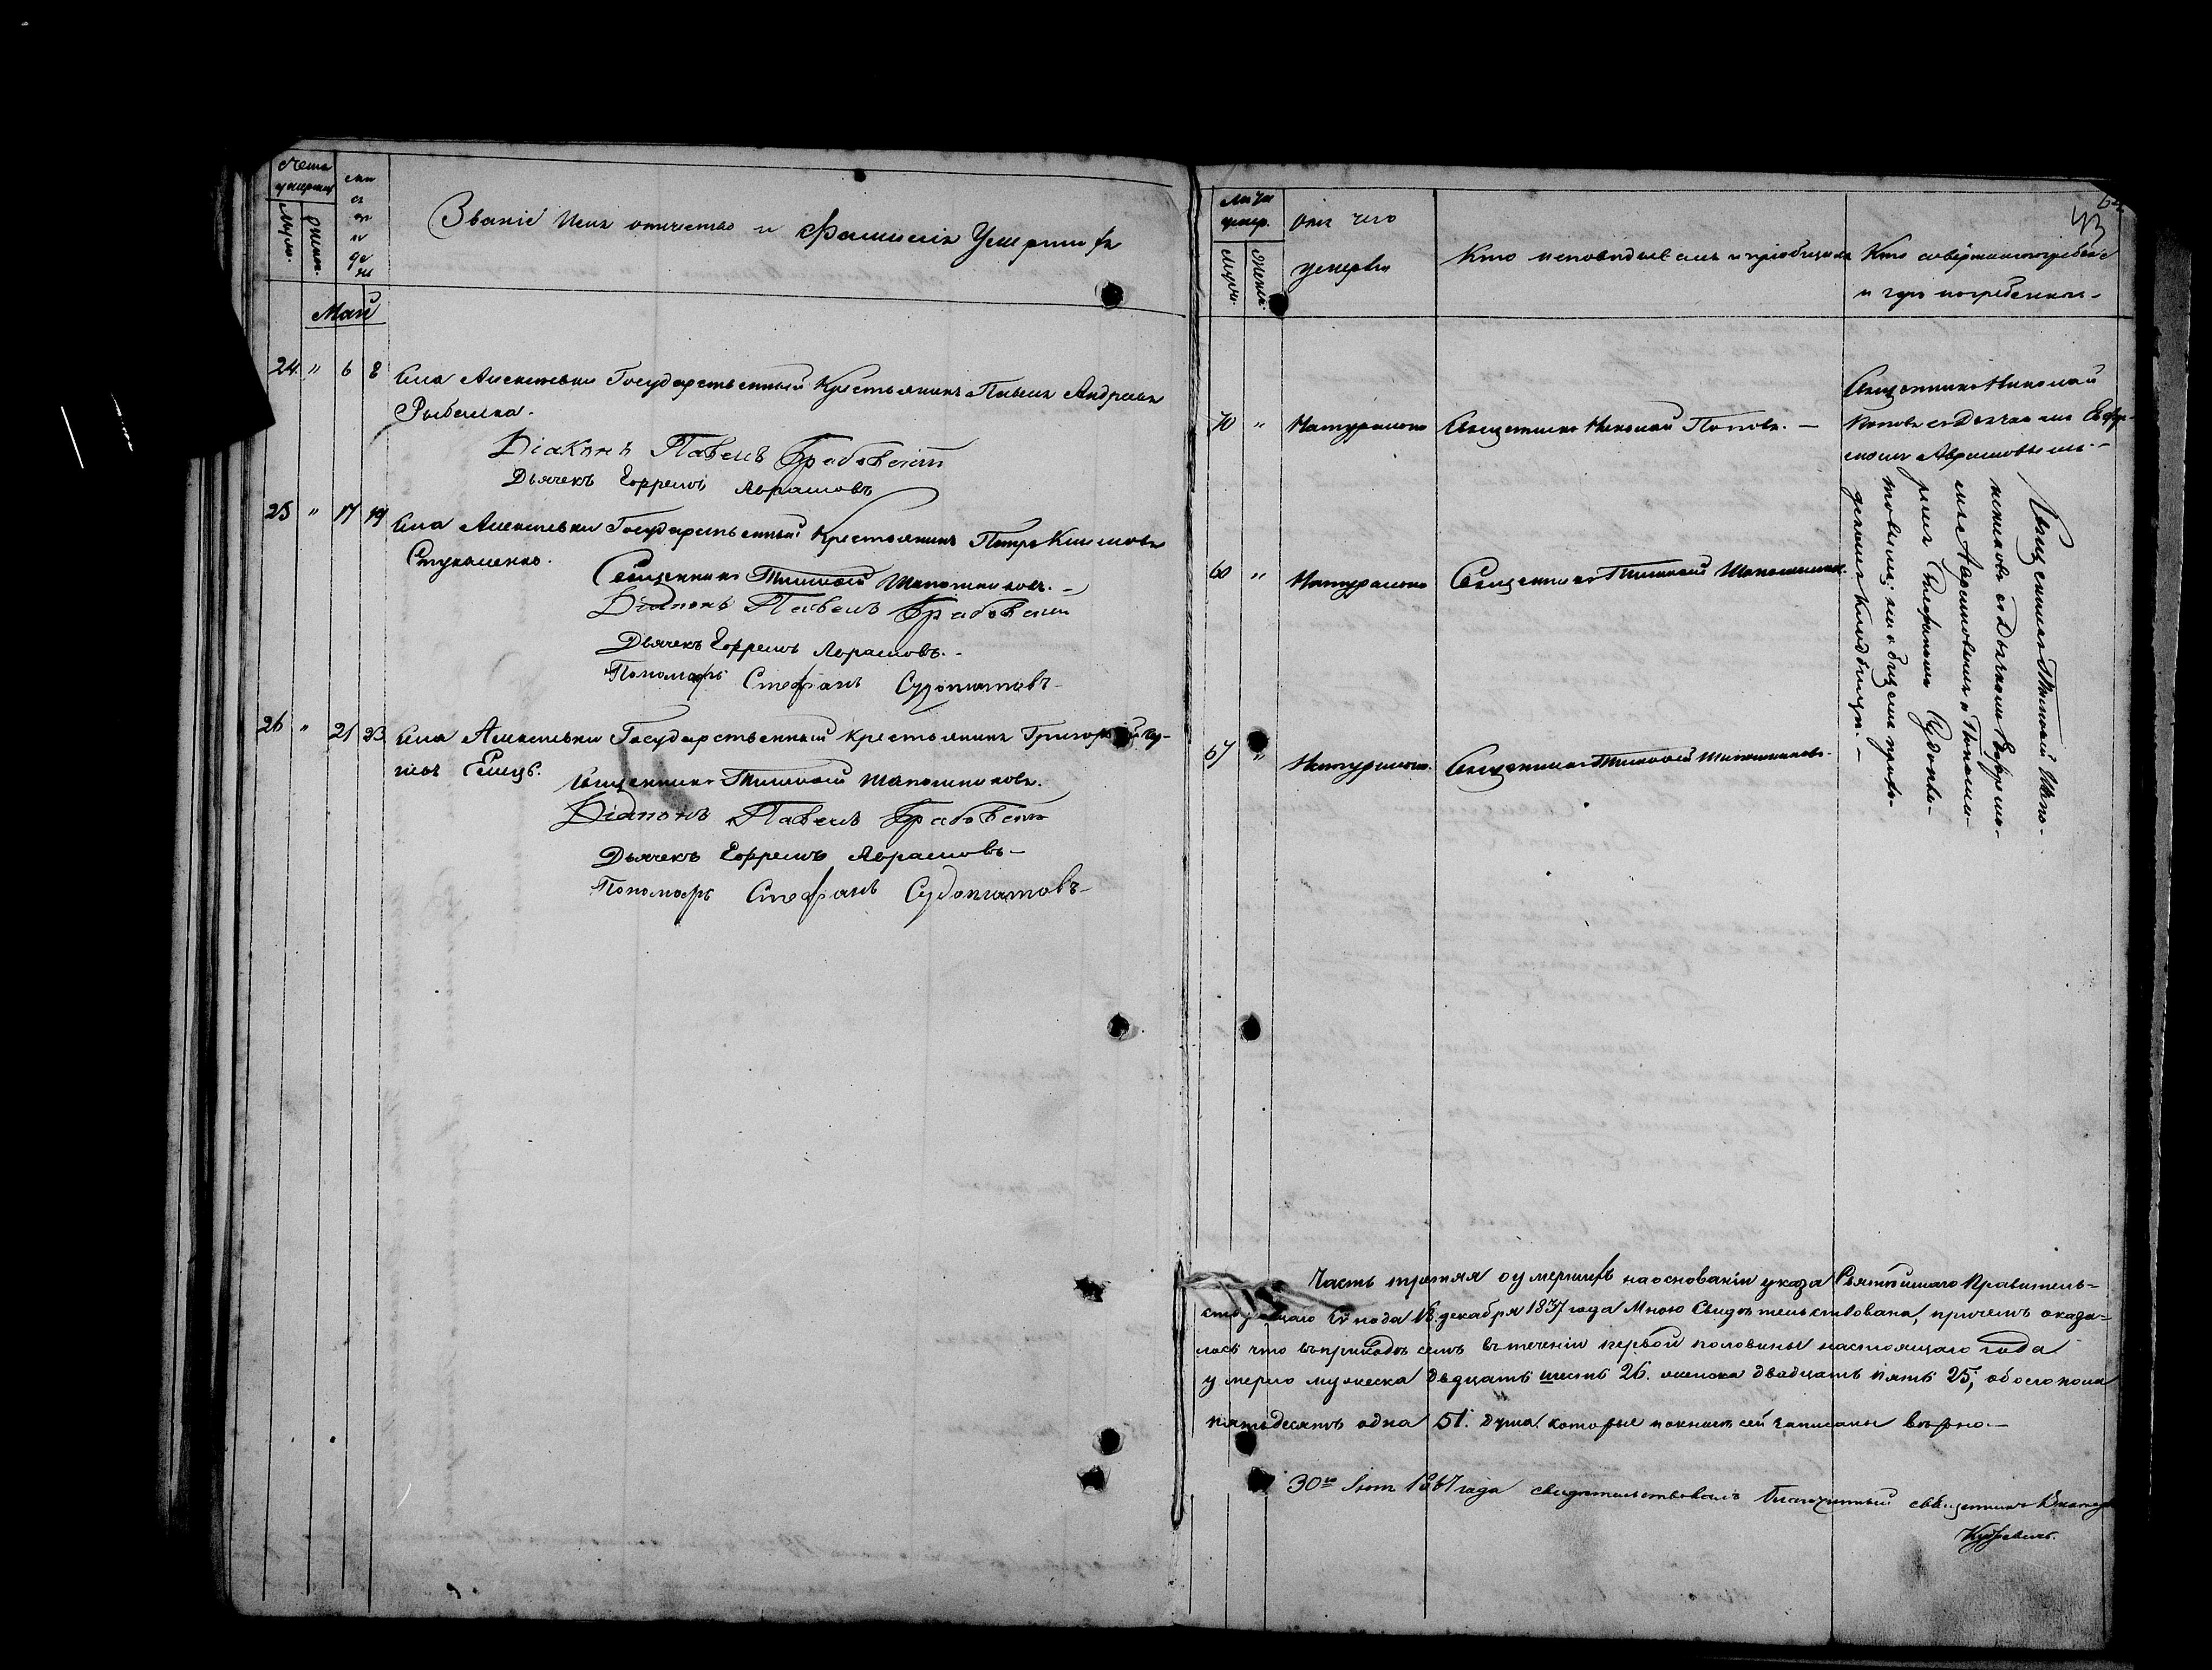 Счетъ
умершихъ
Муж.
Женс.
Званіе Имя отчество и Фамилія Умершихъ
Май
24. " 6 8 Села Алексѣевки Государственный Крестьянинъ Павелъ Андреевъ
Рыбалка.
Діаконъ Павелъ Грабовскій
Дьячекъ Ефремъ Аврамовъ
25 " 17 19 Села Алексѣевки Государственный Крестьянинъ Петръ Климовъ
Стукаленко.
Священникъ Тимоѳей Шапошниковъ. -
Діаконъ Павелъ Грабовскій
Дьячекъ Ефремъ Аврамовъ. -
Пономарь Стефанъ Судоплатовъ -
26 " 21 23 Села Алексѣевки Государственный крестьянинъ Григорій
Священникъ Тимоѳей Шапошниковъ.
Діаконъ Павелъ Грабовскій
Дьячекъ Ефремъ Аврамовъ -
Пономарь Стефанъ Судоплатовъ -
43
Лѣта
умер.
Муж.
Женс.
отъ чего
умерли
Кто исповѣдывалъ и пріобщалъ
Кто совершалъ погребеніе
и гдѣ погребены. -
70 " Натурально Священникъ Николай Поповъ. -
Священникъ Николай
Поповъ съ Дьячкомъ Ефре-
момъ Аврамовымъ. -
60 " Натурально Священникъ Тимоѳей Шапошник.
67 " Натурально. Священникъ Тимоѳей Шапошниковъ.
Священникъ Тимоѳей Шапо-
шниковъ съ Дьячкомъ Ефремо-
мъ Аврамовымъ и Понома-
ремъ Стефаномъ Судопла-
товымъ; на общемъ прихо-
дскомъ Кладбищѣ. -
Часть третяя о умершихъ на основаніи указа Святѣйшаго Правитель-
ствующаго Сѵнода 18. декабря 1837 года Мною Свидѣтельствована, причемъ оказа-
лось что въ приходѣ семъ въ теченіи первой половины настоящаго года
умерло мужеска двадцать шесть 26. женска двадцать пять 25, обоего пола
пятьдесятъ одна 51. душа. которые по книгѣ сей записаны вѣрно. -
30го 1867 года свидѣтельствовалъ Благочинный священникъ